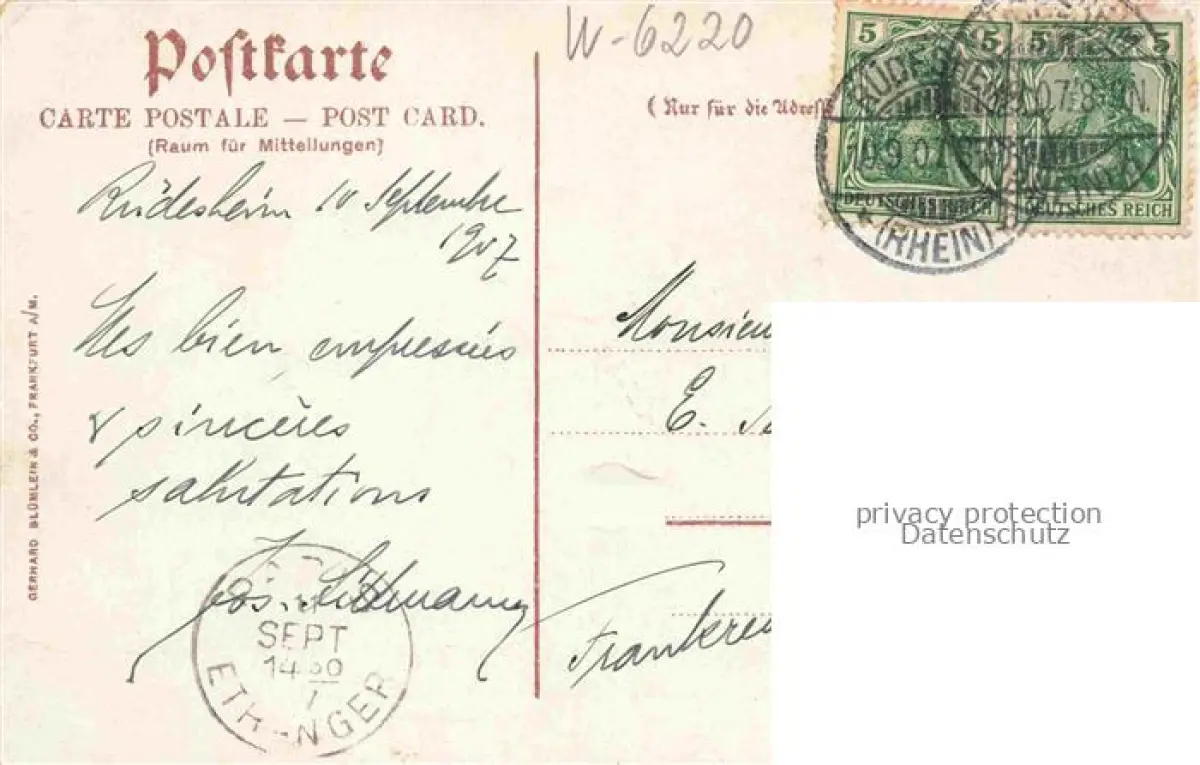 Postkarte
CARTE POSTALE — POST CARD.
(Raum für Mitteilungen)
W-6220
(Nur für die Adresse
5 5 5 5
DEUTSCHES REICH
DEUTSCHES REICH
RÜDESHEIM
10.9.07. 8-9N.
* (RHEIN)
Rüdesheim 10 Septembre
1907
Mes bien empressées
& sincères
salutations
Jos.
SEPT
14 30
7
ETRANGER
Monsieu
E.
Frankrei
GERHARD BLÜMLEIN & CO., FRANKFURT A/M.
privacy protection
Datenschutz